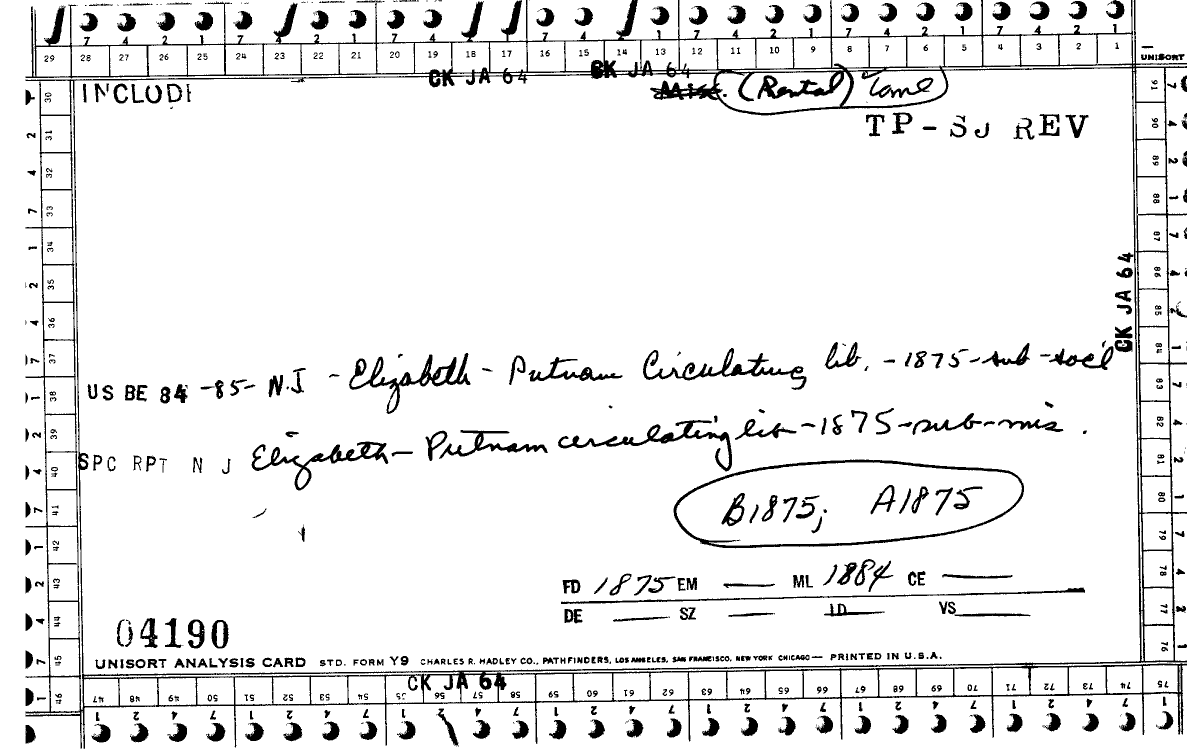 7 4 2 1 7 2 1 7 4 2 1 7 4 7 4 2 1 7 4 2 1 7 4 2 1
29 28 27 26 25 24 23 22 21 20 19 18 17 16 15 14 13 12 11 10 9 8 7 6 5 4 3 2 1
UNISORT
CK JA 64 CK JA 64
INCLUDE (Rental)
TP-SJ REV
CK JA 64
US BE 84 -85- N.J - Elizabeth - Putnam Circulating lib. - 1875 - sub - soc'l
SPC RPT N J Elizabeth - Putnam circulating lib - 1875 - sub - mis.
B1875; A1875
FD 1875 EM — ML 1884 CE —
DE — SZ — LD — VS —
04190
UNISORT ANALYSIS CARD STD. FORM Y9 CHARLES R. HADLEY CO., PATHFINDERS, LOS ANGELES, SAN FRANCISCO, NEW YORK CHICAGO — PRINTED IN U.S.A.
CK JA 64
30 31 32 33 34 35 36 37 38 39 40 41 42 43 44 45 46
47 48 49 50 51 52 53 54 55 56 57 58 59 60 61 62 63 64 65 66 67 68 69 70 71 72 73 74 75
91 90 89 88 87 86 85 84 83 82 81 80 79 78 77 76